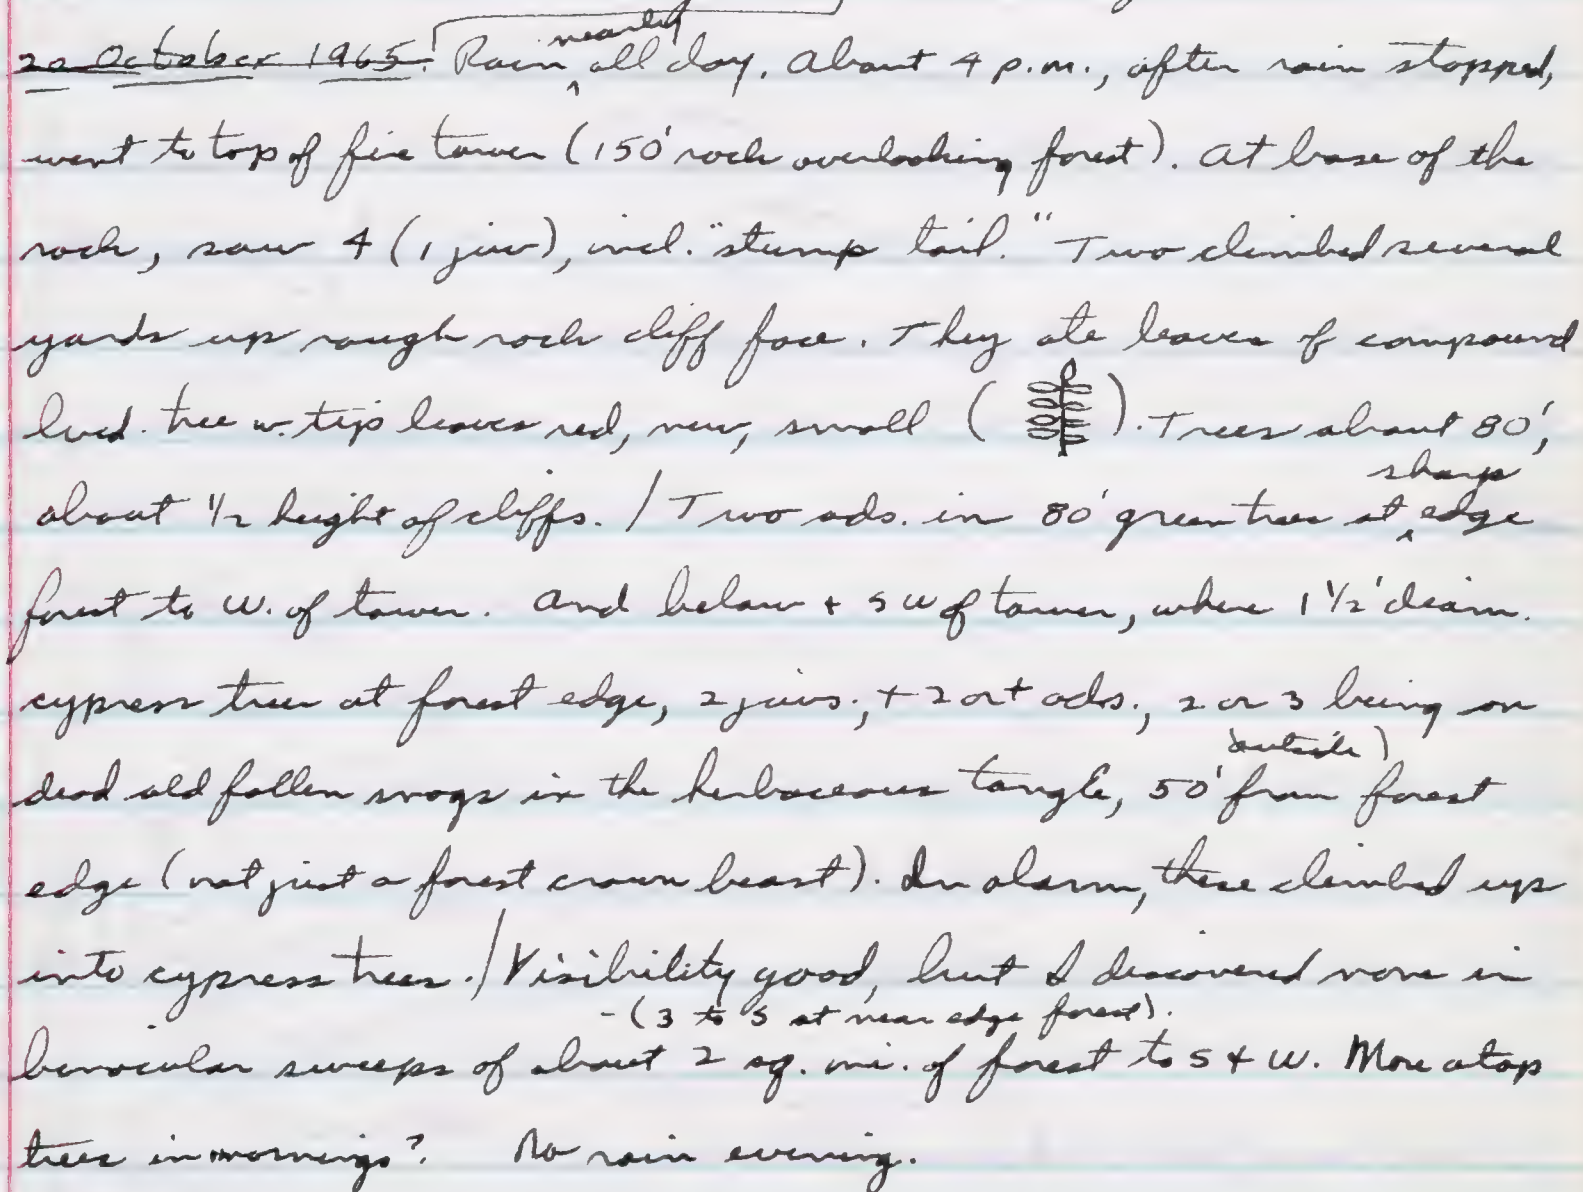 20 October 1965. Rain nearly all day. About 4 p.m., after rain stopped,
went to top of fire tower (150' rock overlooking forest). At base of the
rock, saw 4 (1 juv), incl. "stump tail." Two climbed several
yards up rough rock cliff face. They ate leaves of compound
lvd. tree w. tip leaves red, new, small ( ). Trees about 80',
about 1/2 height of cliffs. / Two ads. in 80' green trees at sharp edge
forest to W. of tower. And below + SW of tower, where 1 1/2' diam.
cypress trees at forest edge, 2 juvs., + 2 or + ads., 2 or 3 being on
dead old fallen snags in the herbaceous tangle, 50' (outside) from forest
edge (not just a forest crown beast). In alarm, these climbed up
into cypress trees. / Visibility good, but I discovered none in
binocular sweeps of about 2 sq. mi. of forest to S + W. - (3 to 5 at near edge forest). More atop
trees in mornings? No rain evening.